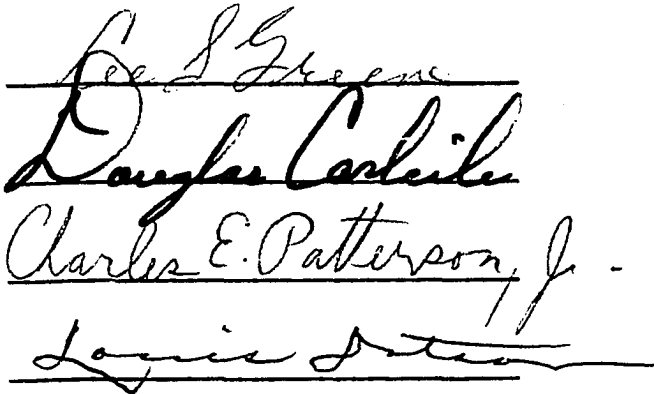 Lee S Greene
Douglas Carlisle
Charles E. Patterson, Jr.
Louis Dotson